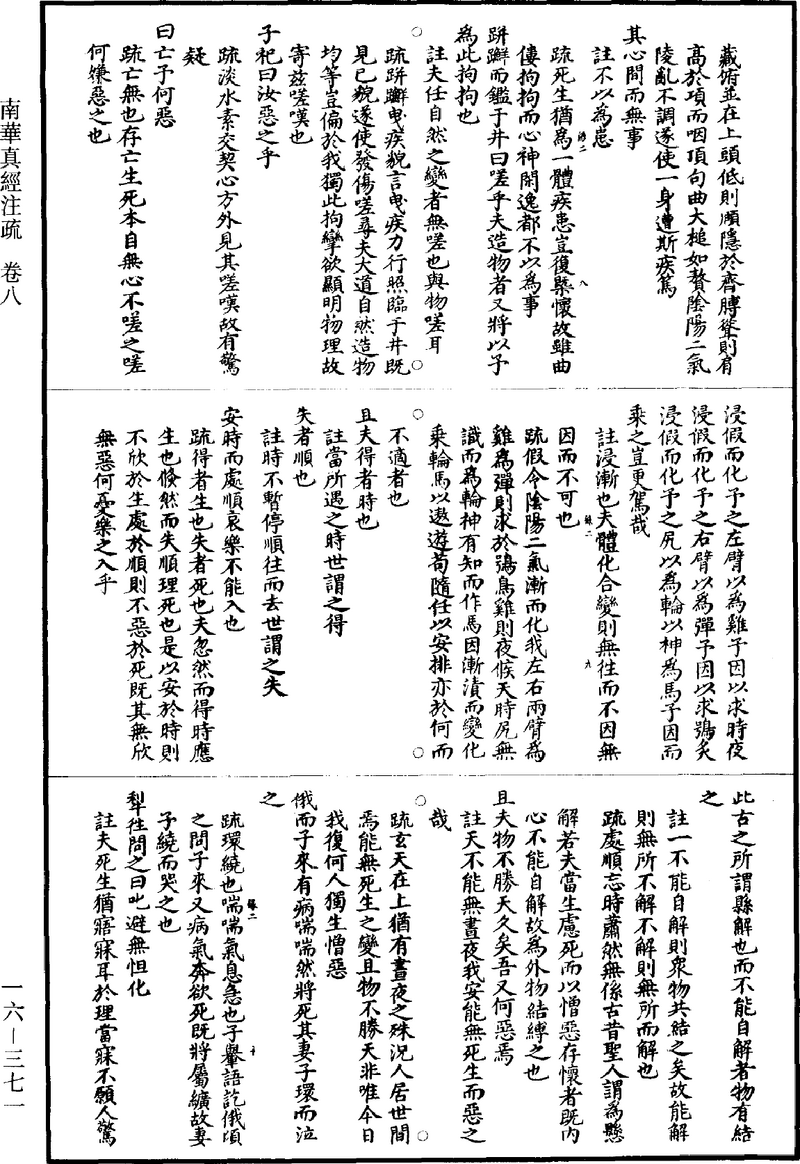 南華真經注疏　卷八
藏腑並在上頭低則頤隱於齊膊聳則肩
高於項而咽頂句曲大槌如贅陰陽二氣
陵亂不調遂使一身遭斯疾篤
其心閒而無事
註不以為患
疏死生猶為一體疾患豈復槩懷故雖曲
僂拘拘而心神閑逸都不以為事
跰𨇤而鑑于井曰嗟乎夫造物者又將以予
為此拘拘也
註夫任自然之變者無嗟也與物嗟耳
疏跰𨇤曳疾貌言曳疾力行照臨于井既
見己貌遂使發傷嗟尋夫大道自然造物
均等豈偏於我獨此拘攣欲顯明物理故
寄茲嗟嘆也
子祀曰汝惡之乎
疏淡水素交契心方外見其嗟嘆故有驚
疑
曰亡予何惡
疏亡無也存亡生死本自無心不嗟之嗟
何嫌惡之也
浸假而化予之左臂以為雞子因以求時夜
浸假而化予之右臂以為彈子因以求鴞炙
浸假而化予之尻以為輪以神為馬子因而
乘之豈更駕哉
註浸漸也夫體化合變則無往而不因無
因而不可也
疏假令陰陽二氣漸而化我左右兩臂為
雞為彈則求於鴞鳥雞則夜候天時尻無
識而為輪神有知而作馬因漸漬而變化
乘輪馬以遨遊苟隨任以安排亦於何而
不適者也
且夫得者時也
註當所遇之時世謂之得
失者順也
註時不暫停順往而去世謂之失
安時而處順哀樂不能入也
疏得者生也失者死也夫忽然而得時應
生也倏然而失順理死也是以安於時則
不欣於生處於順則不惡於死既其無欣
無惡何憂樂之入乎
此古之所謂縣解也而不能自解者物有結
之
註一不能自解則衆物共結之矣故能解
則無所不解不解則無所而解也
疏處順忘時蕭然無係古昔聖人謂為懸
解若夫當生慮死而以憎惡存懷者既內
心不能自解故為外物結縛之也
且夫物不勝天久矣吾又何惡焉
註天不能無晝夜我安能無死生而惡之
哉
疏玄天在上猶有晝夜之殊況人居世間
焉能無死生之變且物不勝天非唯今日
我復何人獨生憎惡
俄而子來有病喘喘然將死其妻子環而泣
之
疏環繞也喘喘氣息急也子轝語訖俄頃
之間子來又病氣奔欲死既將屬纊故妻
子繞而哭之也
犁往問之曰叱避無怛化
註夫死生猶寤寐耳於理當寐不願人驚
一六—三七一